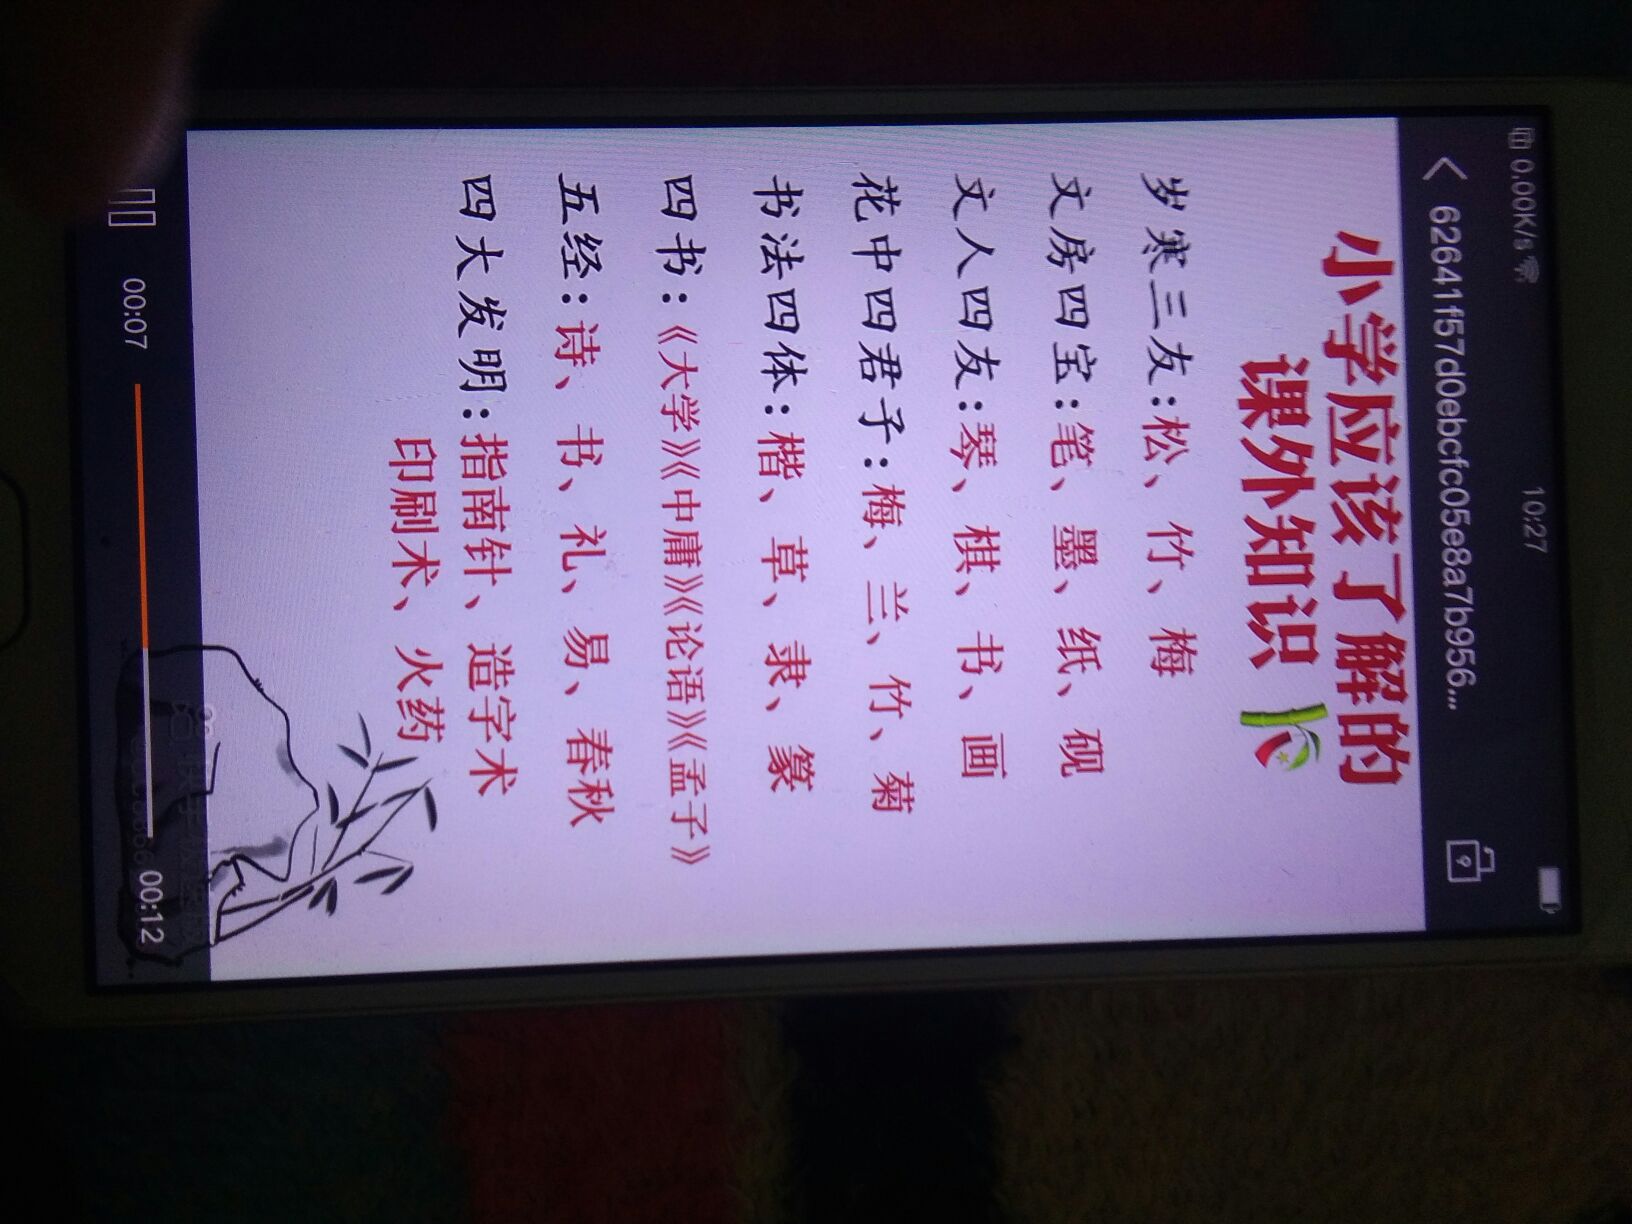 0.00K/s
10:27
626411f57d0ebcfc05e8a7b956...
小学应该了解的
课外知识
岁寒三友:松、竹、梅
文房四宝:笔、墨、纸、砚
文人四友:琴、棋、书、画
花中四君子:梅、兰、竹、菊
书法四体:楷、草、隶、篆
四书:《大学》《中庸》《论语》《孟子》
五经:诗、书、礼、易、春秋
四大发明:指南针、造字术
印刷术、火药
00:07
00:12